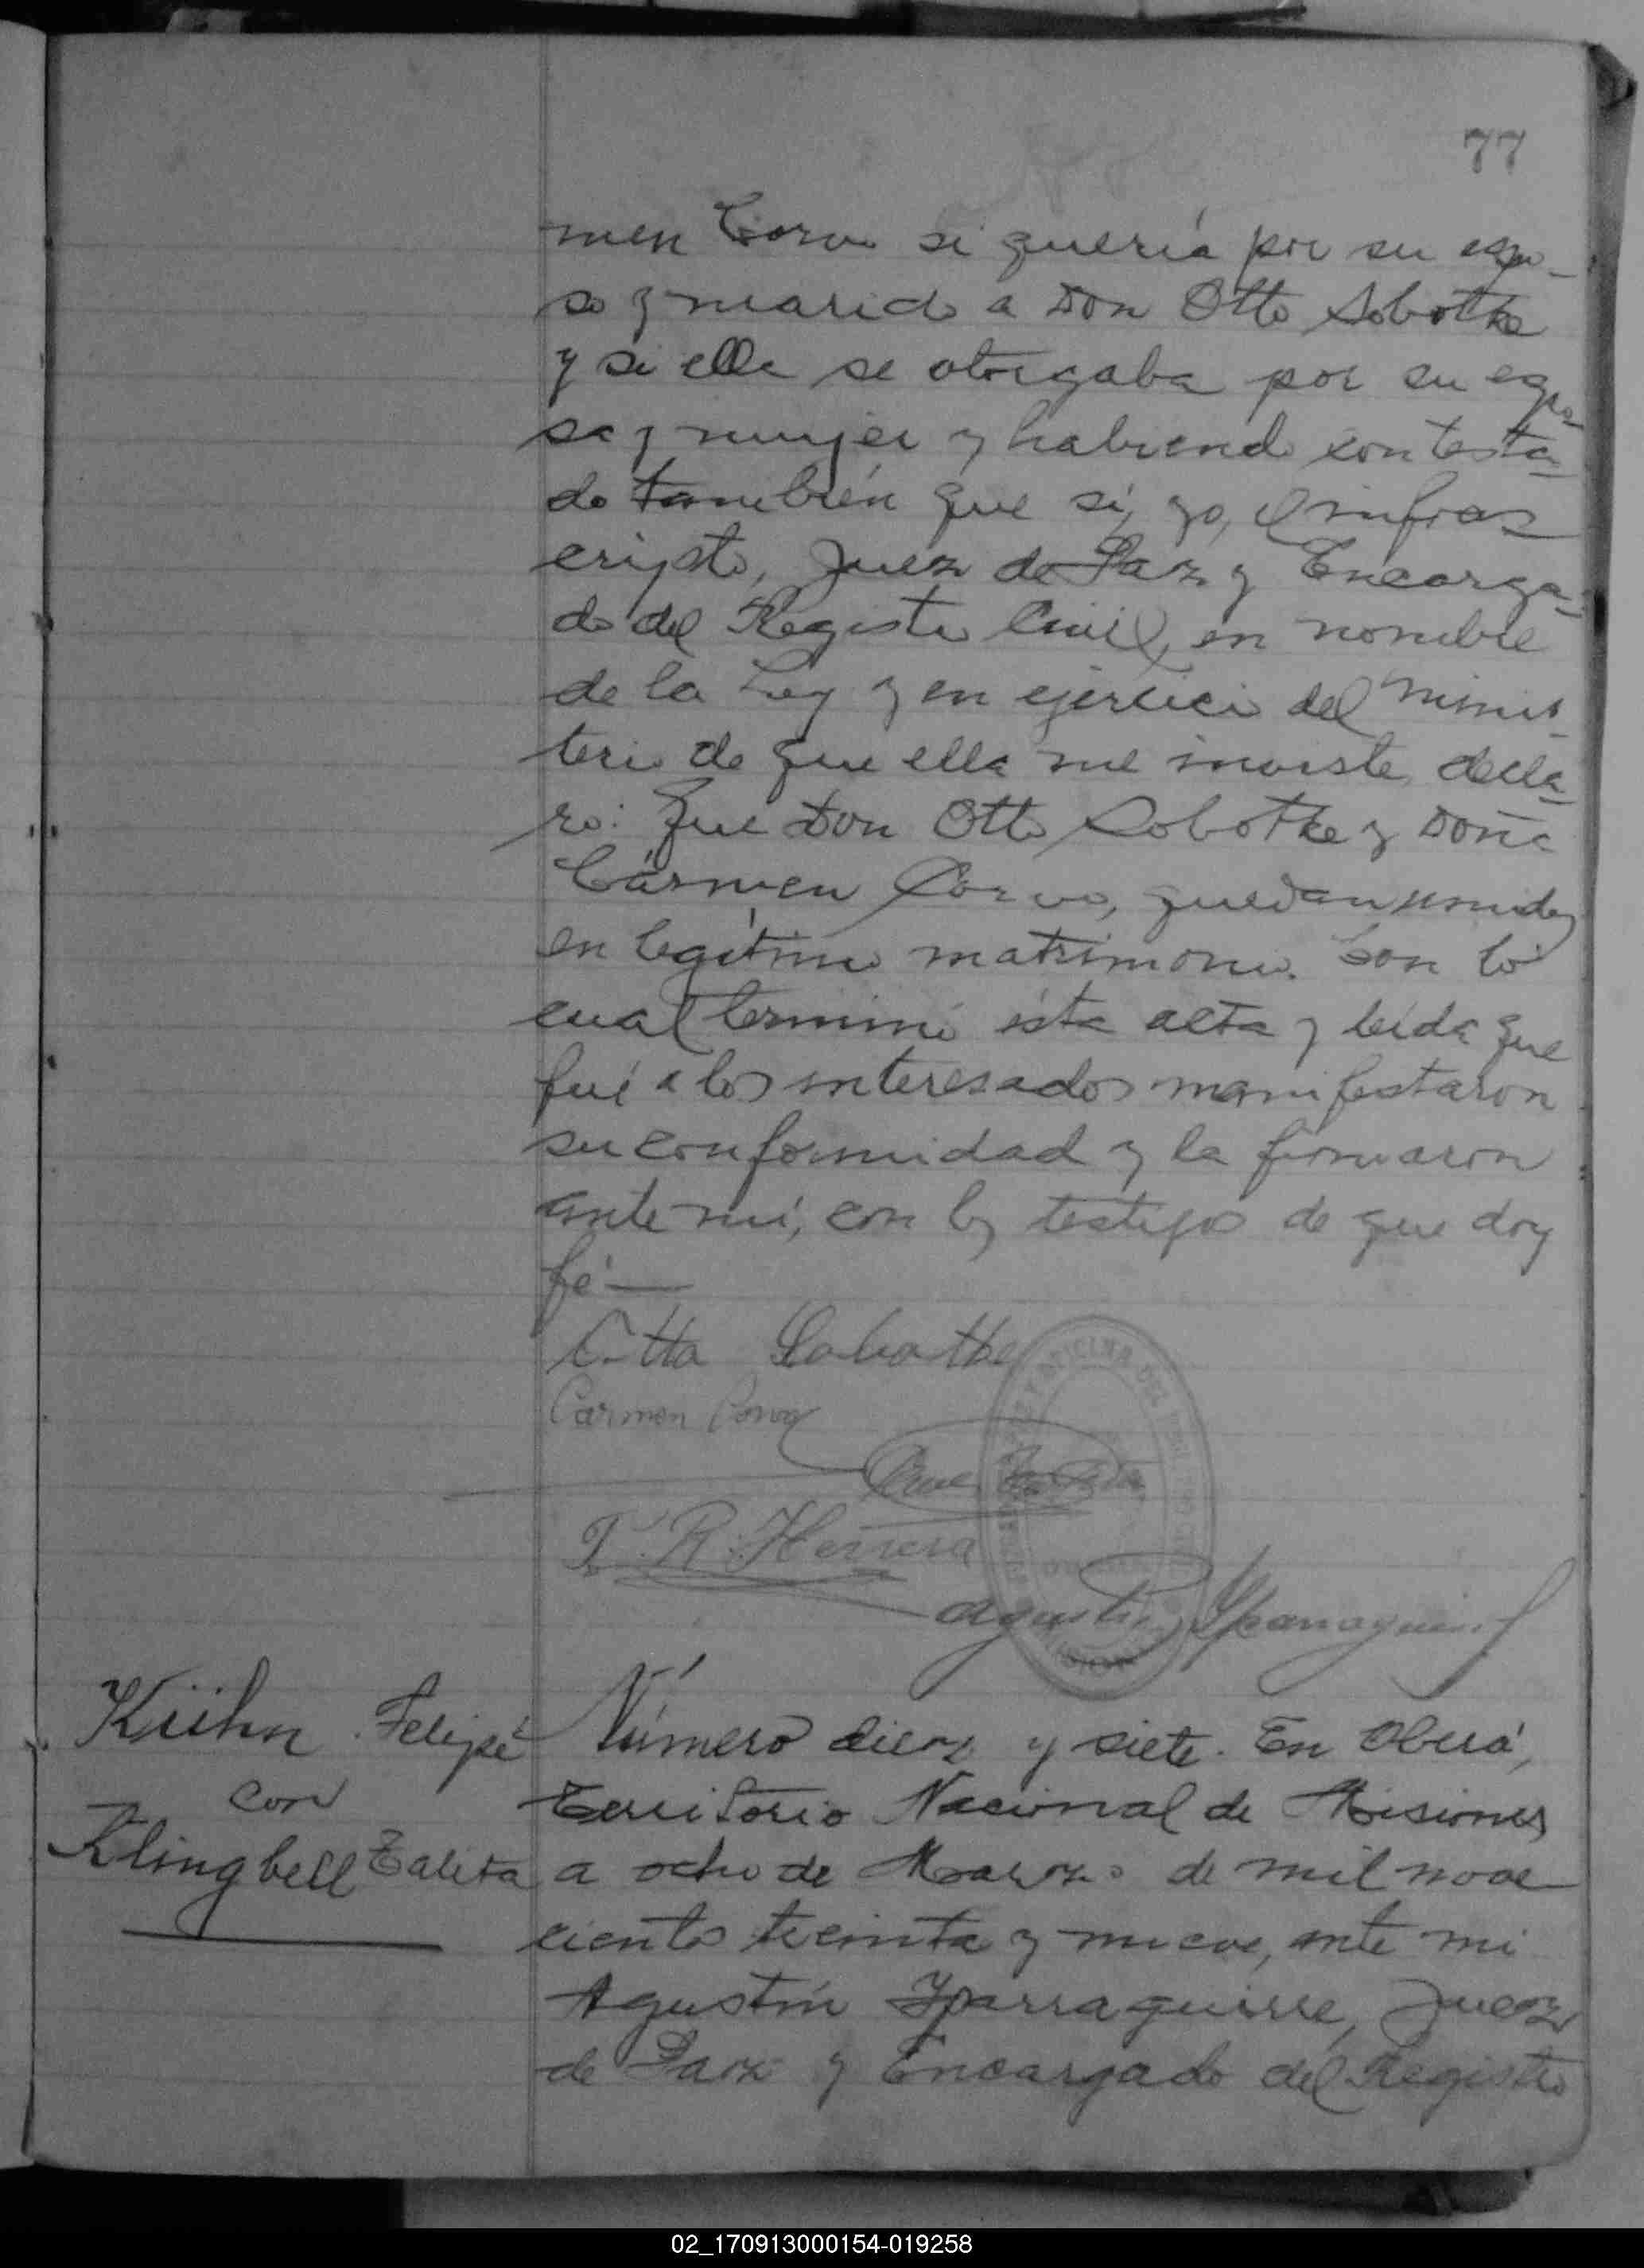 77
men Corvo si quería por su espo-
so y marido a Don Otto Sobotke
y si ella se otorgaba por su espo-
sa y mujer y habiendo contesta-
do también que sí, yo, el infras
cripto, Juez de Paz y Encarga-
do del Registro Civil, en nombre
de la Ley y en ejercicio del minis-
terio de que ella me inviste, decla-
ro: Que Don Otto Sobotke y Doña
Cármen Corvo, quedan unidos
en legítimo matrimonio. Con lo
cual terminó ésta acta y leída que
fué a los interesados manifestaron
su conformidad y la firmaron
ante mí, con los testigos de que doy
fé—
Otto Sobotke
Carmen Corvo
OFICINA DEL
T. R. Herrera
Agustin Yparraguirre
Kühn Felipe
con
Klingbeil Talita
Número diez y siete. En Oberá,
Territorio Nacional de Misiones
a ocho de Marzo de mil nove
cientos treinta y nueve, ante mi
Agustín Yparraguirre, Juez
de Paz y Encargado del Registro
02_170913000154-019258